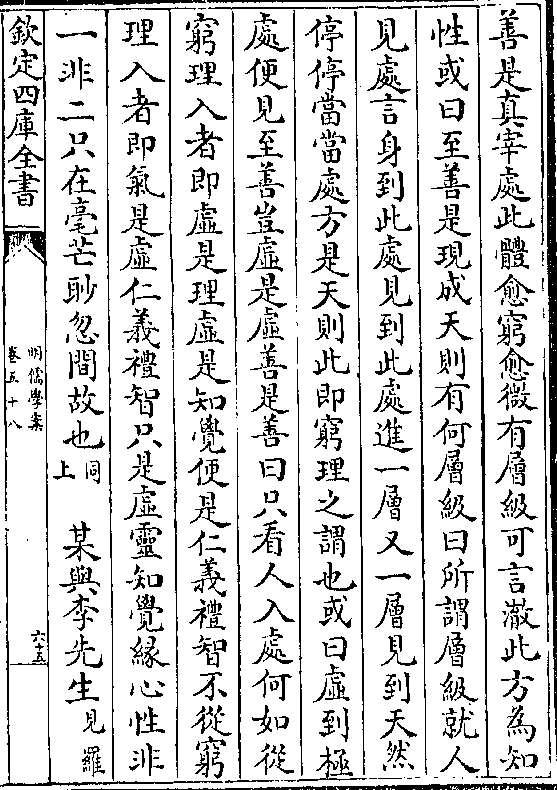 善是真宰處此體愈窮愈微有層級可言澈此方為知
性或曰至善是現成天則有何層級曰所謂層級就人
見處言身到此處見到此處進一層又一層見到天然
停停當當處方是天則此即窮理之謂也或曰虛到極
處便見至善豈虛是虛善是善曰只看人入處何如從
窮理入者即虛是理虛是知覺便是仁義禮智不從窮
理入者即氣是虛仁義禮智只是虛靈知覺緣心性非
一非二只在毫芒眇忽間故也同上 某與李先生見羅
欽定四庫全書
明儒學案
卷五十八
六十五